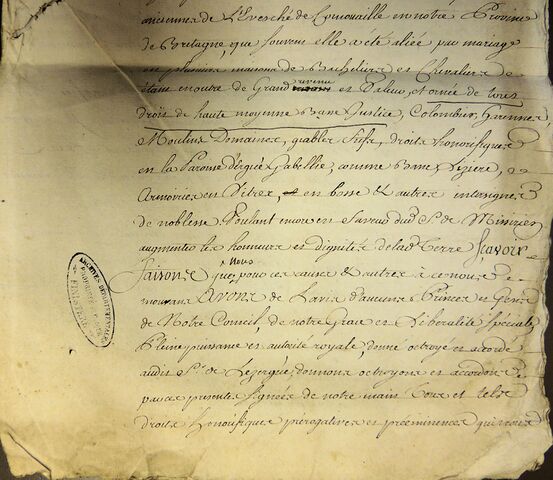 anciennes de L'Evesché de Cornouaille en notre Province
de Bretagne, que souvent elle a été aliée par mariage
en plusieurs maisons de Bacheliers et Chevaliers de
étant en outre de Grand revenu et Valeur, et ornée de tous
droits de haute moyenne Basse Justice, Colombier, Garennes
Moulins Domaines, fiefs, droits honorifiques
en la Paroisse d'ergué Gaberic, comme Banc, Lizière,
Armoiries en Vitres, en bosse & autres intersignes
de noblesse. Voulant encore en faveur dud. Sr. de
augmenter les honneurs et dignités de lad. Terre Scavoir
faisons que Nous pour ces causes & autres à ce nous
mouvans Avons de L'avis d'aucuns Princes et Gens
de Notre Conseil, de notre Grace et Liberalité spéciale
Pleine puissance et autorité royale, donné octroyé et accordé
audit Sr. de Lezergué, donnons octroyons et accordons
par ces presentes signées de notre main Tous et telz
droits Honorifiques prérogatives et prééminences qui
ARCHIVES DÉPARTEMENTALES
FINISTÈRE